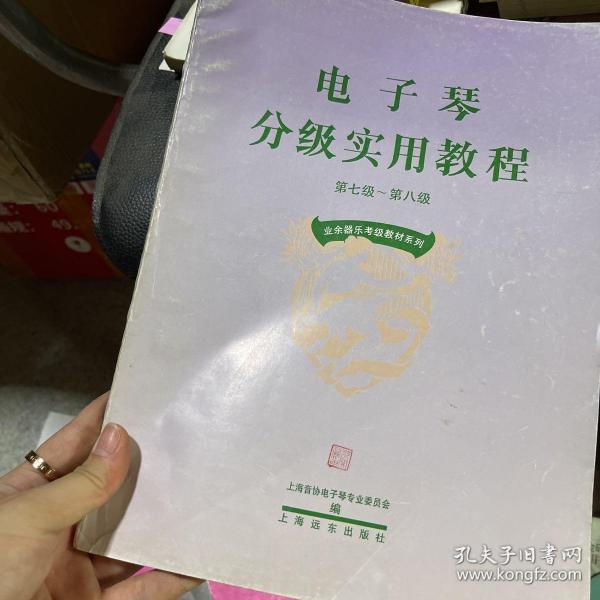 电子琴
分级实用教程
第七级~第八级
业余器乐考级教材系列
上海音协电子琴专业委员会
编
上海远东出版社
49.
孔夫子旧书网
www.kongfz.com